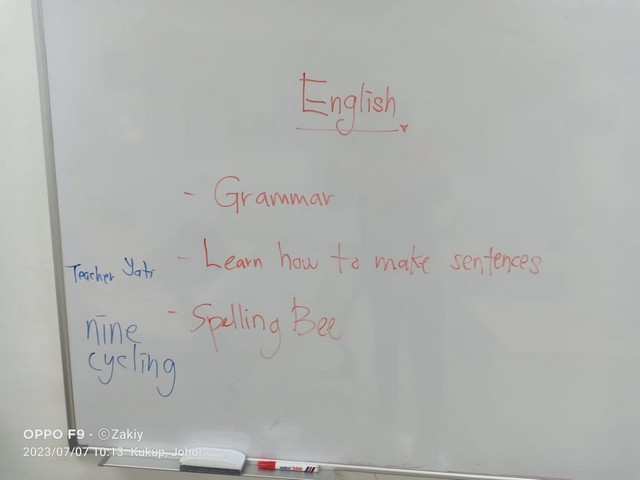 English
- Grammar
- Learn how to make sentences
- Spelling Bee
Teacher Yati
nine
cycling
OPPO F9 · ©Zakiy
2023/07/07 10:13 Kukup, Johor